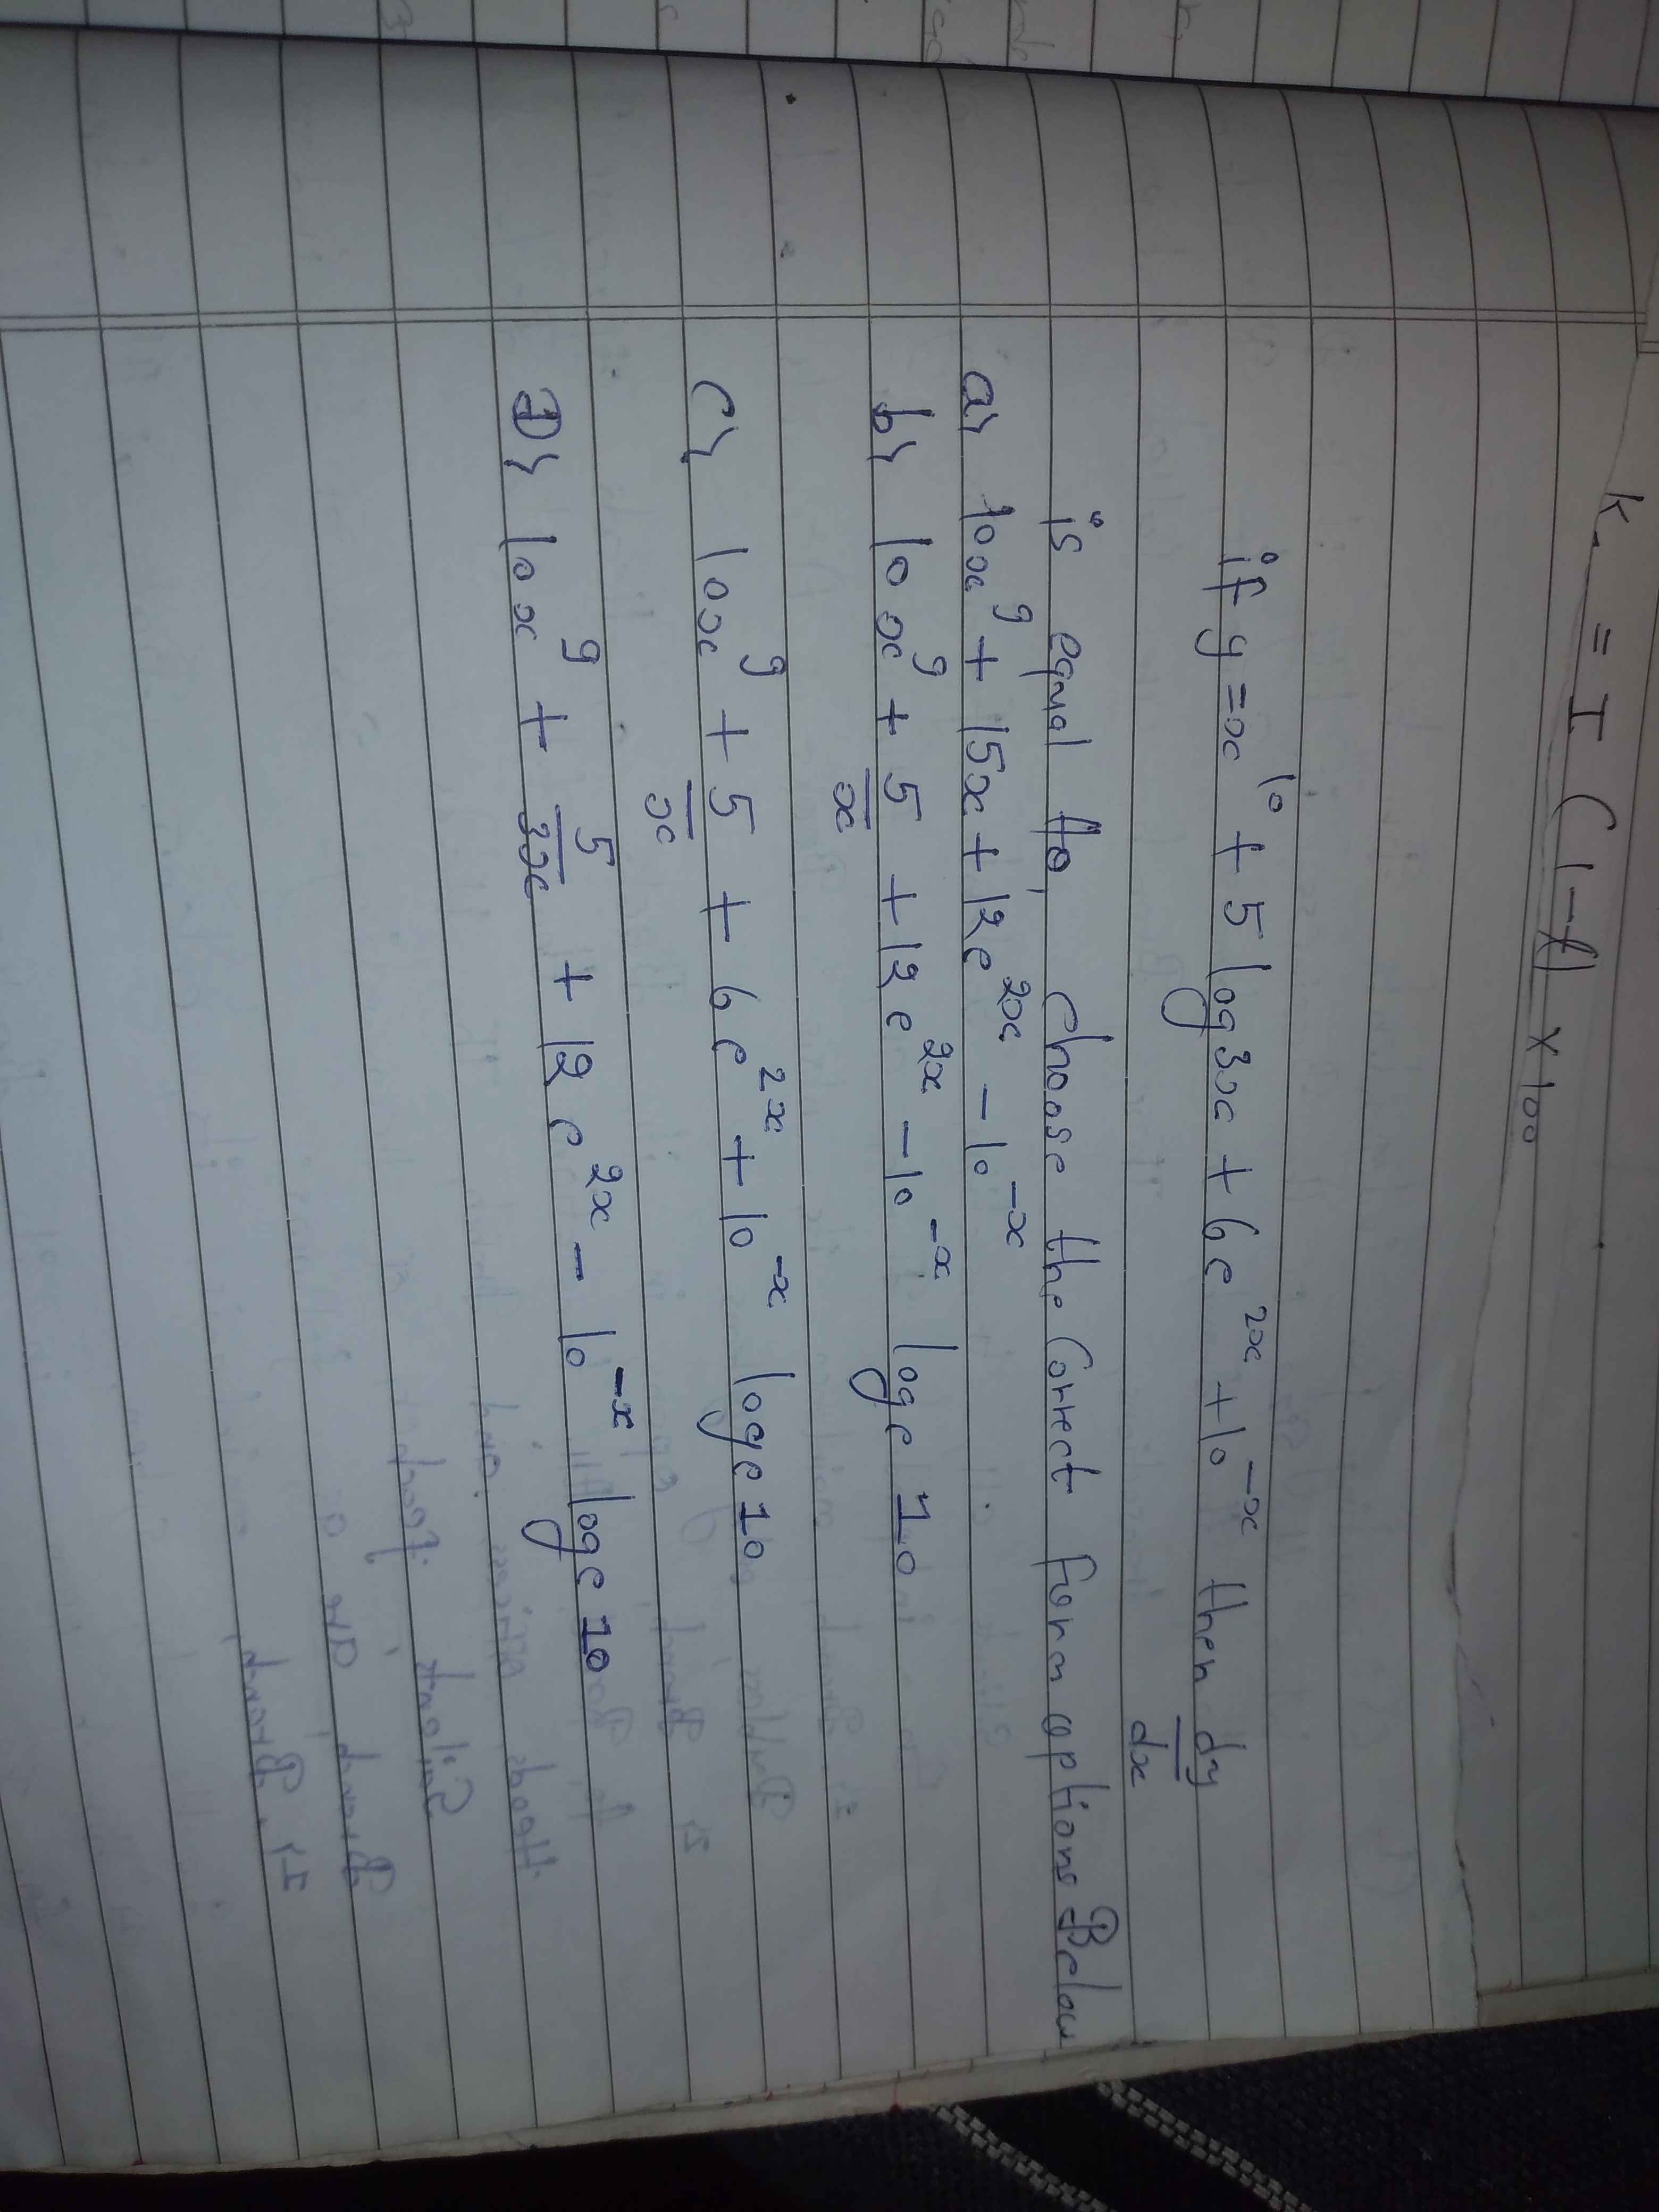 K = I (1-f) × 100
if y = x^10 + 5 log 3x + 6e^2x + 10^-x then dy/dx
is equal to, choose the Correct form options Below
a} 10x^9 + 15x + 12e^2x - 10^-x
b} 10x^9 + 5/x + 12e^2x - 10^-x loge 10
C} 10x^9 + 5/x + 6e^2x + 10^-x loge 10
D} 10x^9 + 5/3x + 12e^2x - 10^-x loge 10